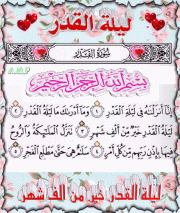 ليلة القدر
سُورَةُ القَدْرِ
بِسْمِ اللَّهِ الرَّحْمَٰنِ الرَّحِيمِ
إِنَّا أَنزَلْنَاهُ فِي لَيْلَةِ الْقَدْرِ ١ وَمَا أَدْرَاكَ مَا لَيْلَةُ الْقَدْرِ ٢
لَيْلَةُ الْقَدْرِ خَيْرٌ مِّنْ أَلْفِ شَهْرٍ ٣ تَنَزَّلُ الْمَلَائِكَةُ وَالرُّوحُ
فِيهَا بِإِذْنِ رَبِّهِم مِّن كُلِّ أَمْرٍ ٤ سَلَامٌ هِيَ حَتَّىٰ مَطْلَعِ الْفَجْرِ ٥
ليلة القدر خير من الف شهر